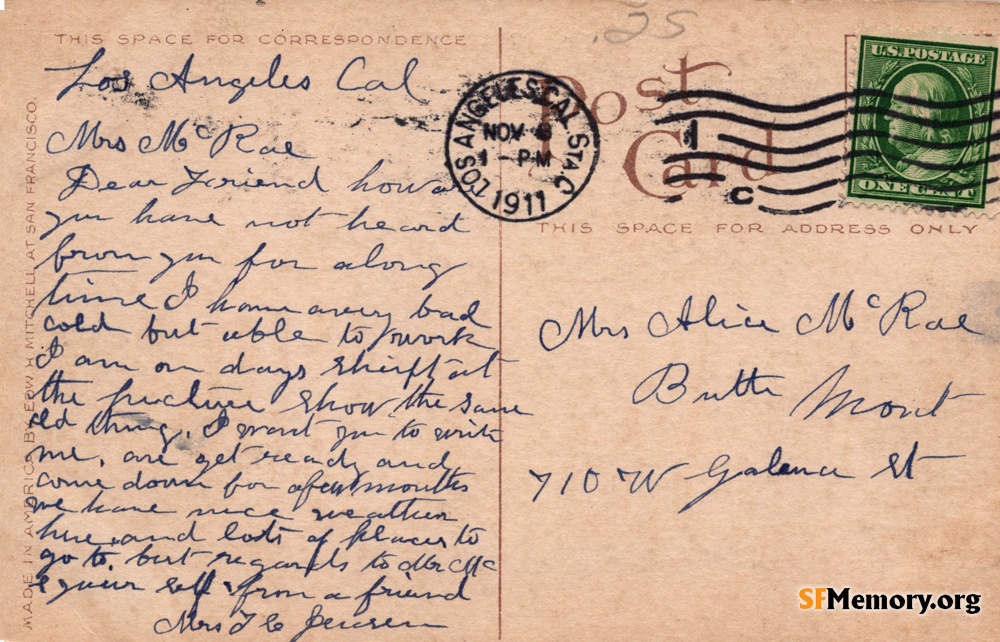 .25
THIS SPACE FOR CORRESPONDENCE
Los Angeles Cal
Mrs McRae
Dear Friend how a
you have not heard
from you for along
time I have avery bad
cold but able to work
I am on days shift at
the picture show, the same
old thing, I want you to write
me, are get ready and
come down for afew months
we have nice weather
here, and lots of places to
go to. best regards to Mr Mc
& your self. from a friend
Mrs
MADE IN AMERICA BY EDW. H. MITCHELL AT SAN FRANCISCO.
Post
Card
LOS ANGELES, CAL. STA. C
NOV
1 - PM
1911
1
C
U.S. POSTAGE
ONE CENT
THIS SPACE FOR ADDRESS ONLY
Mrs Alice McRae
Butte Mont
710 W Galena St
SFMemory.org